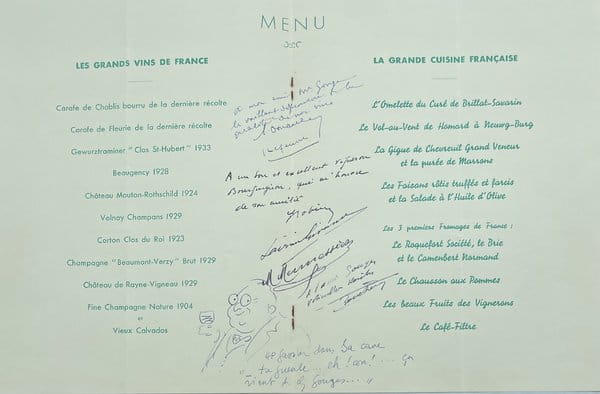 MENU
LES GRANDS VINS DE FRANCE
Carafe de Chablis bourru de la dernière récolte
Carafe de Fleurie de la dernière récolte
Gewurztraminer "Clos St-Hubert" 1933
Beaugency 1928
Château Mouton-Rothschild 1924
Volnay Champans 1929
Corton Clos du Roi 1923
Champagne "Beaumont-Verzy" Brut 1929
Château de Rayne-Vigneau 1929
Fine Champagne Nature 1904
et
Vieux Calvados
A mon ami
A un bon et excellent
Bourguignon, qui m'honore
de son amitié
dans sa cave
"ta gueule... eh! con!... ça
vient de chez Gouges..."
LA GRANDE CUISINE FRANÇAISE
L'Omelette du Curé de Brillat-Savarin
Le Vol-au-Vent de Homard à Neuwg-Burg
La Gigue de Chevreuil Grand Veneur
et la purée de Marrons
Les Faisans rôtis truffés et farcis
et la Salade à l'Huile d'Olive
Les 3 premiers Fromages de France :
Le Roquefort Société, le Brie
et le Camembert Normand
Le Chausson aux Pommes
Les beaux Fruits des Vignerons
Le Café-Filtre